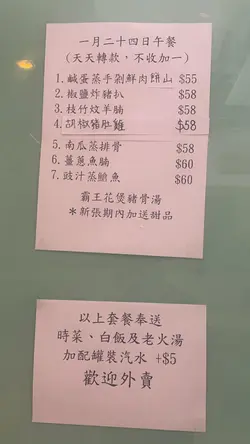 一月二十四日午餐
(天天轉款，不收加一)
1. 鹹蛋蒸手剁鮮肉餅 $55
2. 椒鹽炸豬扒 $58
3. 枝竹炆羊腩 $58
4. 胡椒豬肚雞 $58
5. 南瓜蒸排骨 $58
6. 薑蔥魚腩 $60
7. 豉汁蒸鯧魚 $60
霸王花煲豬骨湯
*新張期內加送甜品
以上套餐奉送
時菜、白飯及老火湯
加配罐裝汽水 +$5
歡迎外賣